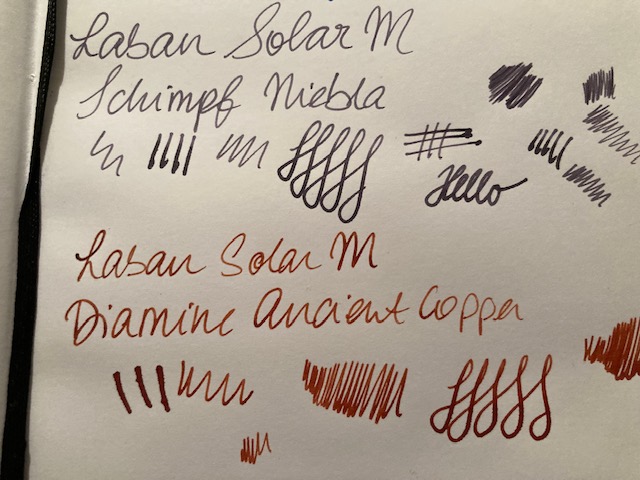 Laban Solar M
Schimpf Niebla
Hello
Laban Solar M
Diamine Ancient Copper